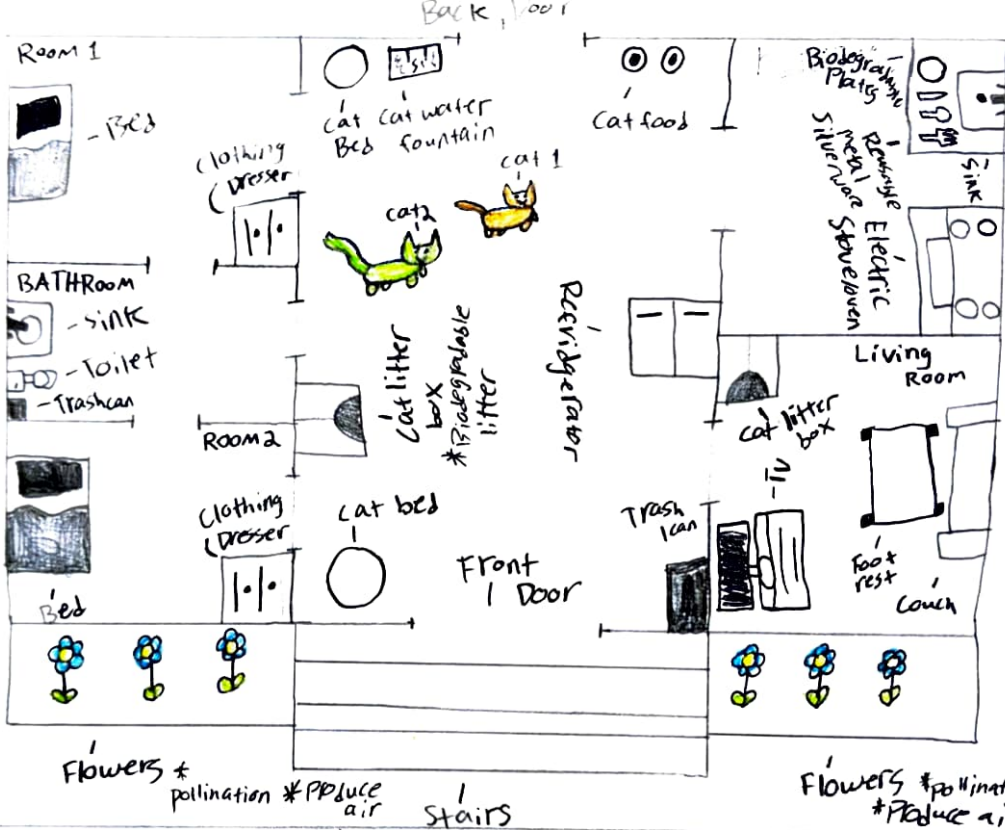 Back Door
ROOM 1
Bed
Clothing
Dresser
Cat
Bed
Cat water
fountain
Cat food
Biodegradable
Plates
Reusable
metal
Silverware
Sink
Electric
Stove/oven
cat 1
cat2
BATHROOM
Sink
Toilet
Trashcan
Cat litter
box
*Biodegradable
litter
Refvidgerator
Living
Room
Cat litter
box
TV
ROOM 2
Clothing
Dresser
Bed
Cat bed
Front
Door
Trash
can
Foot
rest
Couch
Flowers *
pollination *Produce
air
Stairs
Flowers *pollinat
*Produce ai